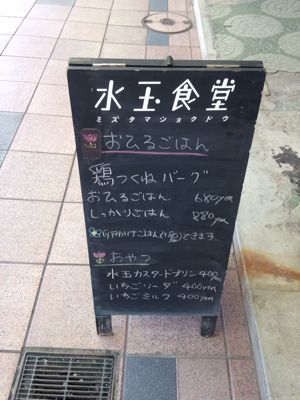 水玉食堂
ミズタマショクドウ
おひるごはん
鶏つくねバーグ
おひるごはん 680yen
しっかりごはん 880yen
ごはん できます。
おやつ
水玉カスタードプリン 400yen
いちごソーダ 400yen
いちごミルク 400yen